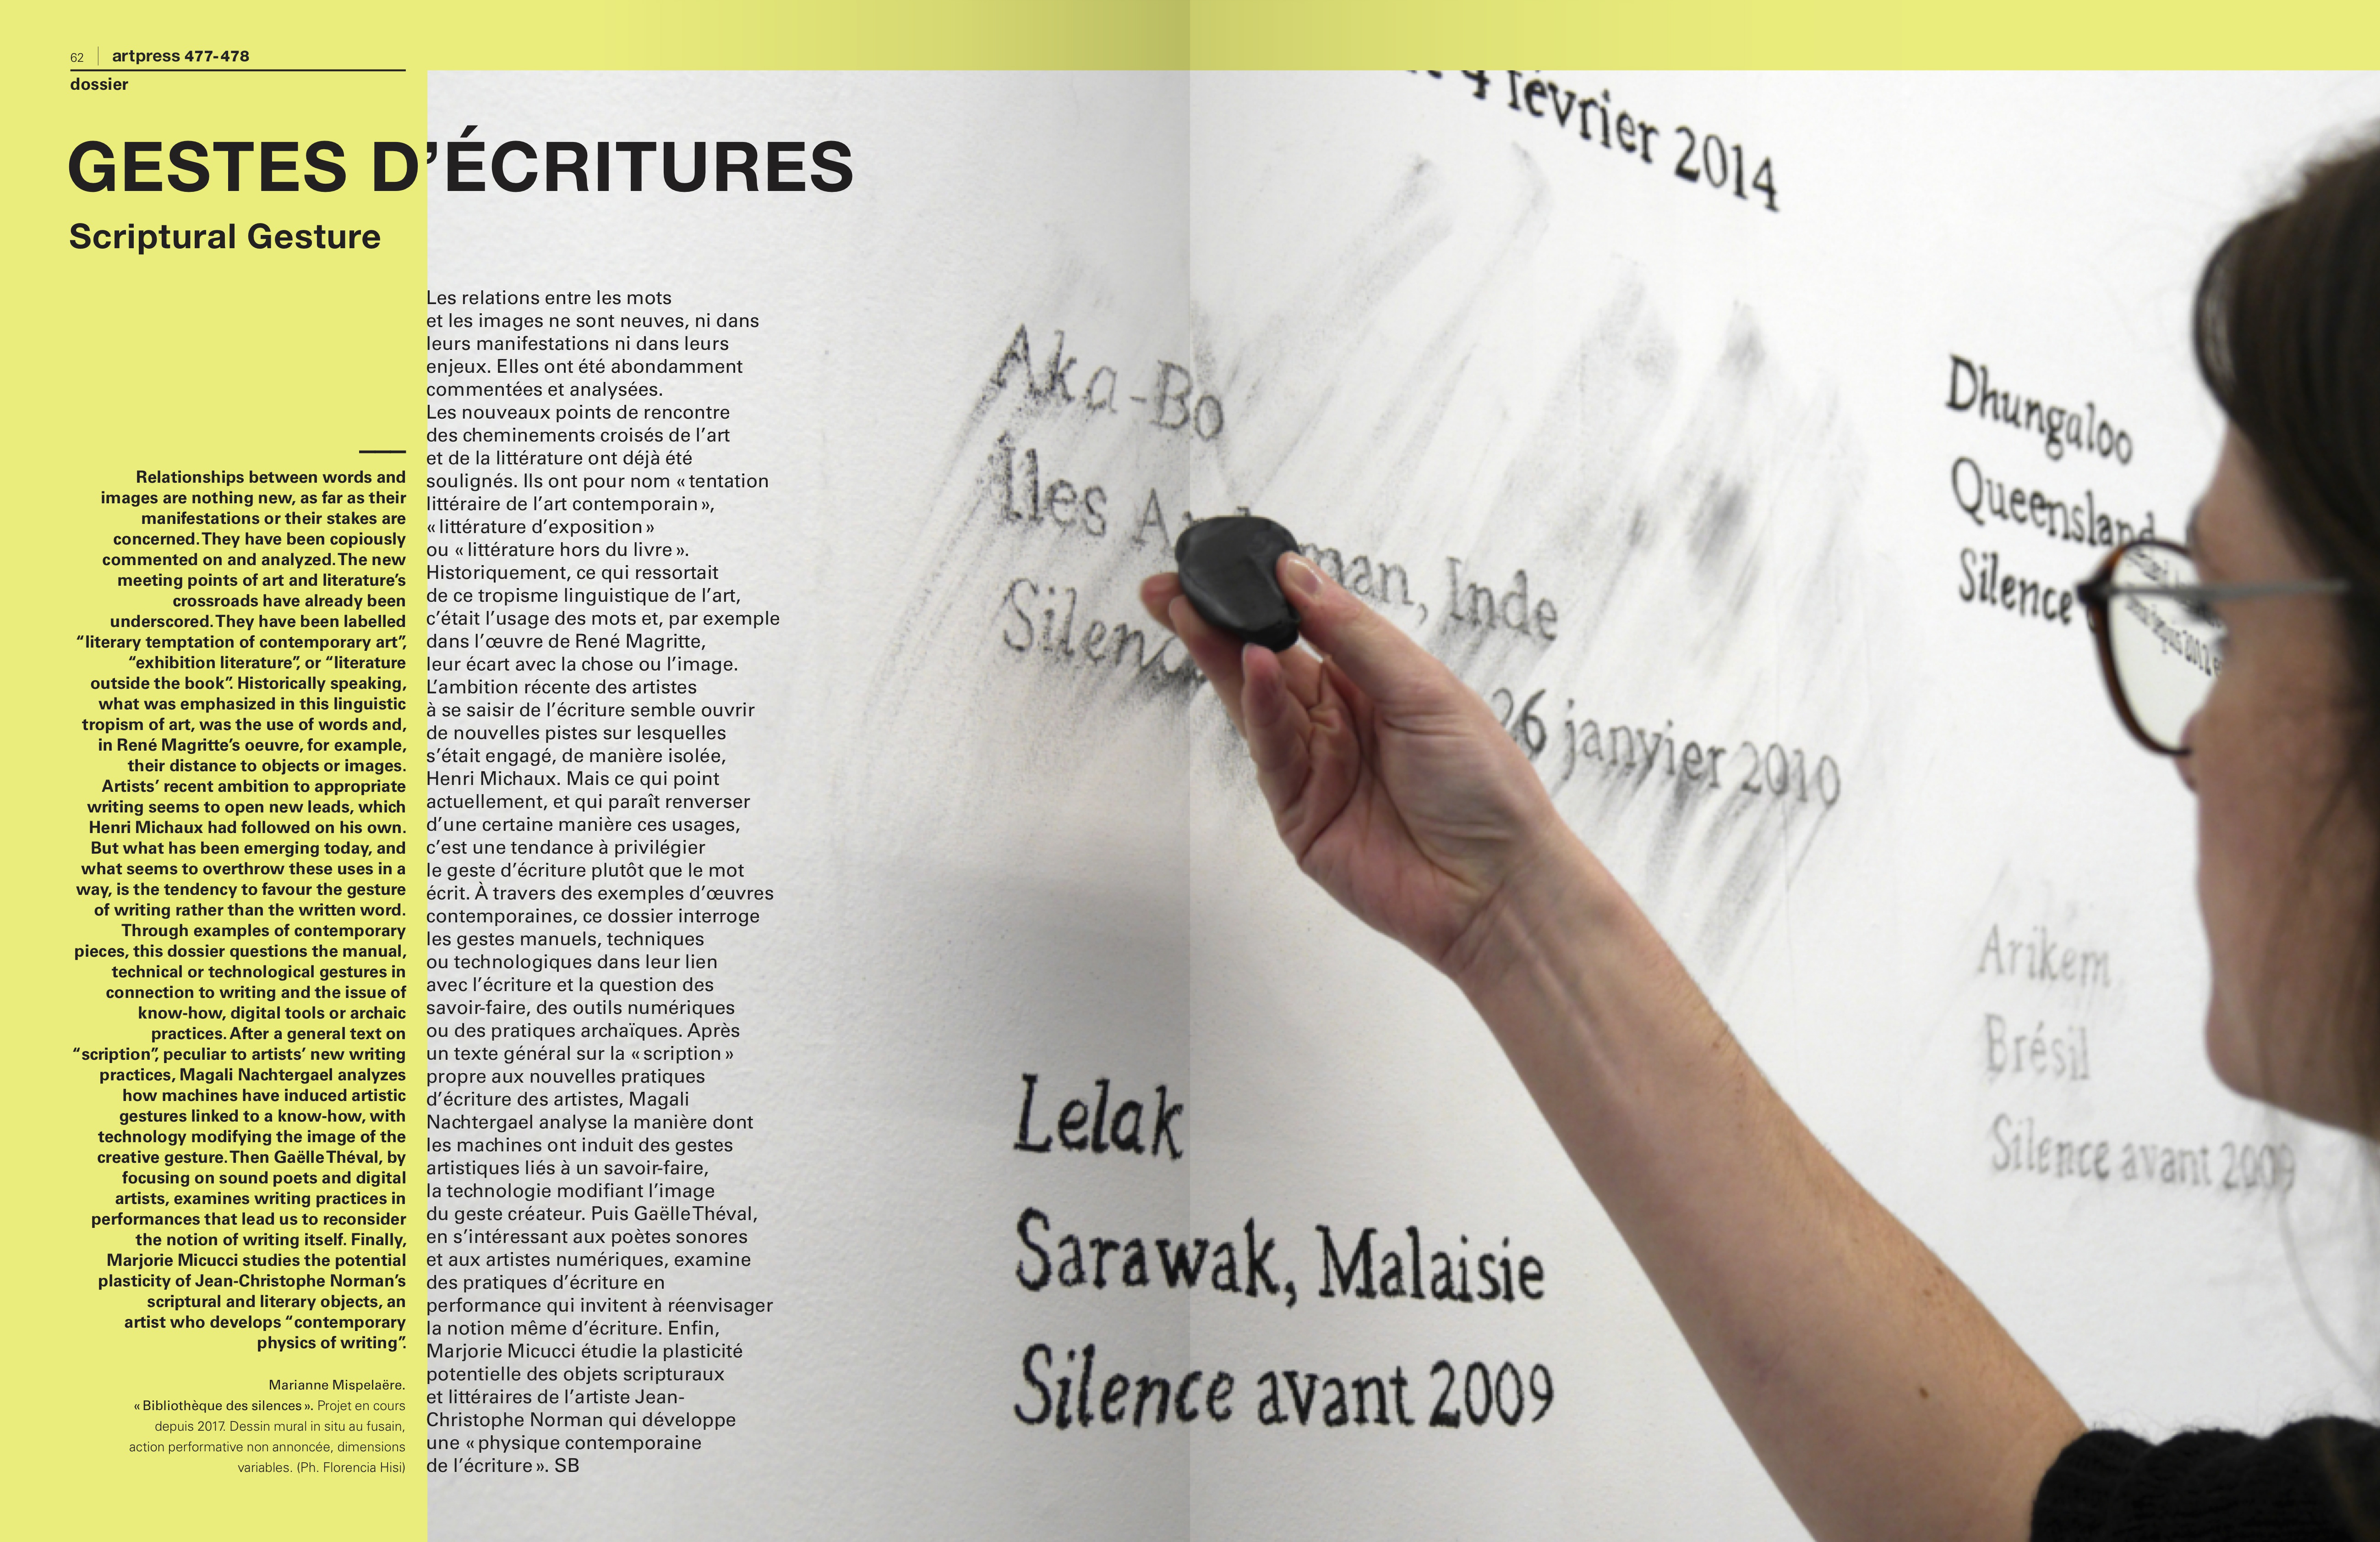 62 artpress 477-478
dossier
GESTES D’ÉCRITURES
Scriptural Gesture
Relationships between words and
images are nothing new, as far as their
manifestations or their stakes are
concerned. They have been copiously
commented on and analyzed. The new
meeting points of art and literature’s
crossroads have already been
underscored. They have been labelled
“literary temptation of contemporary art”,
“exhibition literature”, or “literature
outside the book”. Historically speaking,
what was emphasized in this linguistic
tropism of art, was the use of words and,
in René Magritte’s oeuvre, for example,
their distance to objects or images.
Artists’ recent ambition to appropriate
writing seems to open new leads, which
Henri Michaux had followed on his own.
But what has been emerging today, and
what seems to overthrow these uses in a
way, is the tendency to favour the gesture
of writing rather than the written word.
Through examples of contemporary
pieces, this dossier questions the manual,
technical or technological gestures in
connection to writing and the issue of
know-how, digital tools or archaic
practices. After a general text on
“scription”, peculiar to artists’ new writing
practices, Magali Nachtergael analyzes
how machines have induced artistic
gestures linked to a know-how, with
technology modifying the image of the
creative gesture. Then Gaëlle Théval, by
focusing on sound poets and digital
artists, examines writing practices in
performances that lead us to reconsider
the notion of writing itself. Finally,
Marjorie Micucci studies the potential
plasticity of Jean-Christophe Norman’s
scriptural and literary objects, an
artist who develops “contemporary
physics of writing”.
Marianne Mispelaëre.
« Bibliothèque des silences ». Projet en cours
depuis 2017. Dessin mural in situ au fusain,
action performative non annoncée, dimensions
variables. (Ph. Florencia Hisi)
Les relations entre les mots
et les images ne sont neuves, ni dans
leurs manifestations ni dans leurs
enjeux. Elles ont été abondamment
commentées et analysées.
Les nouveaux points de rencontre
des cheminements croisés de l’art
et de la littérature ont déjà été
soulignés. Ils ont pour nom « tentation
littéraire de l’art contemporain »,
« littérature d’exposition »
ou « littérature hors du livre ».
Historiquement, ce qui ressortait
de ce tropisme linguistique de l’art,
c’était l’usage des mots et, par exemple
dans l’œuvre de René Magritte,
leur écart avec la chose ou l’image.
L’ambition récente des artistes
à se saisir de l’écriture semble ouvrir
de nouvelles pistes sur lesquelles
s’était engagé, de manière isolée,
Henri Michaux. Mais ce qui point
actuellement, et qui paraît renverser
d’une certaine manière ces usages,
c’est une tendance à privilégier
le geste d’écriture plutôt que le mot
écrit. À travers des exemples d’œuvres
contemporaines, ce dossier interroge
les gestes manuels, techniques
ou technologiques dans leur lien
avec l’écriture et la question des
savoir-faire, des outils numériques
ou des pratiques archaïques. Après
un texte général sur la « scription »
propre aux nouvelles pratiques
d’écriture des artistes, Magali
Nachtergael analyse la manière dont
les machines ont induit des gestes
artistiques liés à un savoir-faire,
la technologie modifiant l’image
du geste créateur. Puis Gaëlle Théval,
en s’intéressant aux poètes sonores
et aux artistes numériques, examine
des pratiques d’écriture en
performance qui invitent à réenvisager
la notion même d’écriture. Enfin,
Marjorie Micucci étudie la plasticité
potentielle des objets scripturaux
et littéraires de l’artiste Jean-
Christophe Norman qui développe
une « physique contemporaine
de l’écriture ». SB
4 février 2014
Aka-Bo
Îles Inde
26 janvier 2010
Dhungaloo
Queensland
Silence
Lelak
Sarawak, Malaisie
Silence avant 2009
Arikem
Brésil
Silence avant 2009